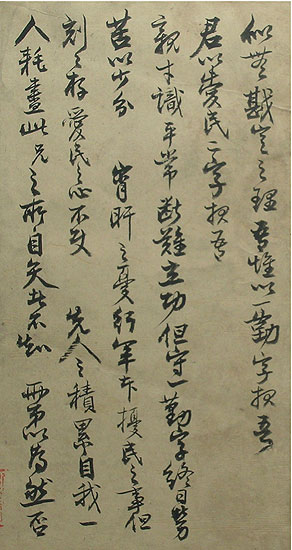 似無戡定之理吾惟以一勤字報吾
君以愛民二字報吾
親才識平常斷難立功但守一勤字終日勞
苦以少分 宵旰之憂行軍本擾民之事但
刻刻存愛民之心不使 先人之積累自我一
人耗盡此兄之所自矢者不知 兩弟以為然否